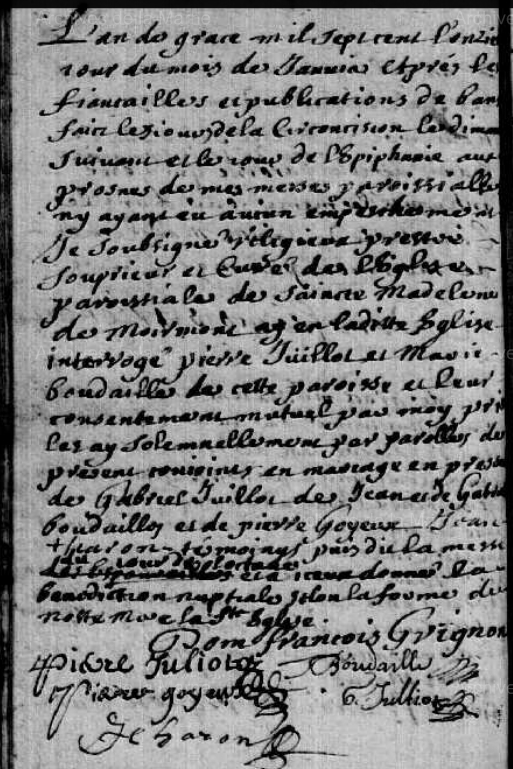 L'an de grace mil sept cent l'onzie
iour du mois de Ianuie Et pres les
fiancailles et publications de ban
faict les iours de la Circoncision le diman
suivant et le iour de l'Epiphanie aux
prosnes de mes messes paroissialle
ny ayant eu aucun empeschement
Je soubsigné religieux prestre
souprieur et Curé de l'Eglise
paroissiale de saincte Madelene
de Moirmont ay en laditte Eglise
interrogé pierre Juillot et Marie
boudaille de cette paroisse et leur
consentement mutuel par moy pris
les ay solemnellement par parolles de
present conioincts en mariage en prese
de Gabriel Juillot de Jean et de
boudaillos et de pierre Goyeux Jean
tharon témoings puis dit la messe
et a iceux donner la
benediction nuptiale selon la forme de
nostre mere la Ste Eglise.
Dom francois Grignon
pierre Juliot Boudaille
pierre goyeux G. Julliot
J charon